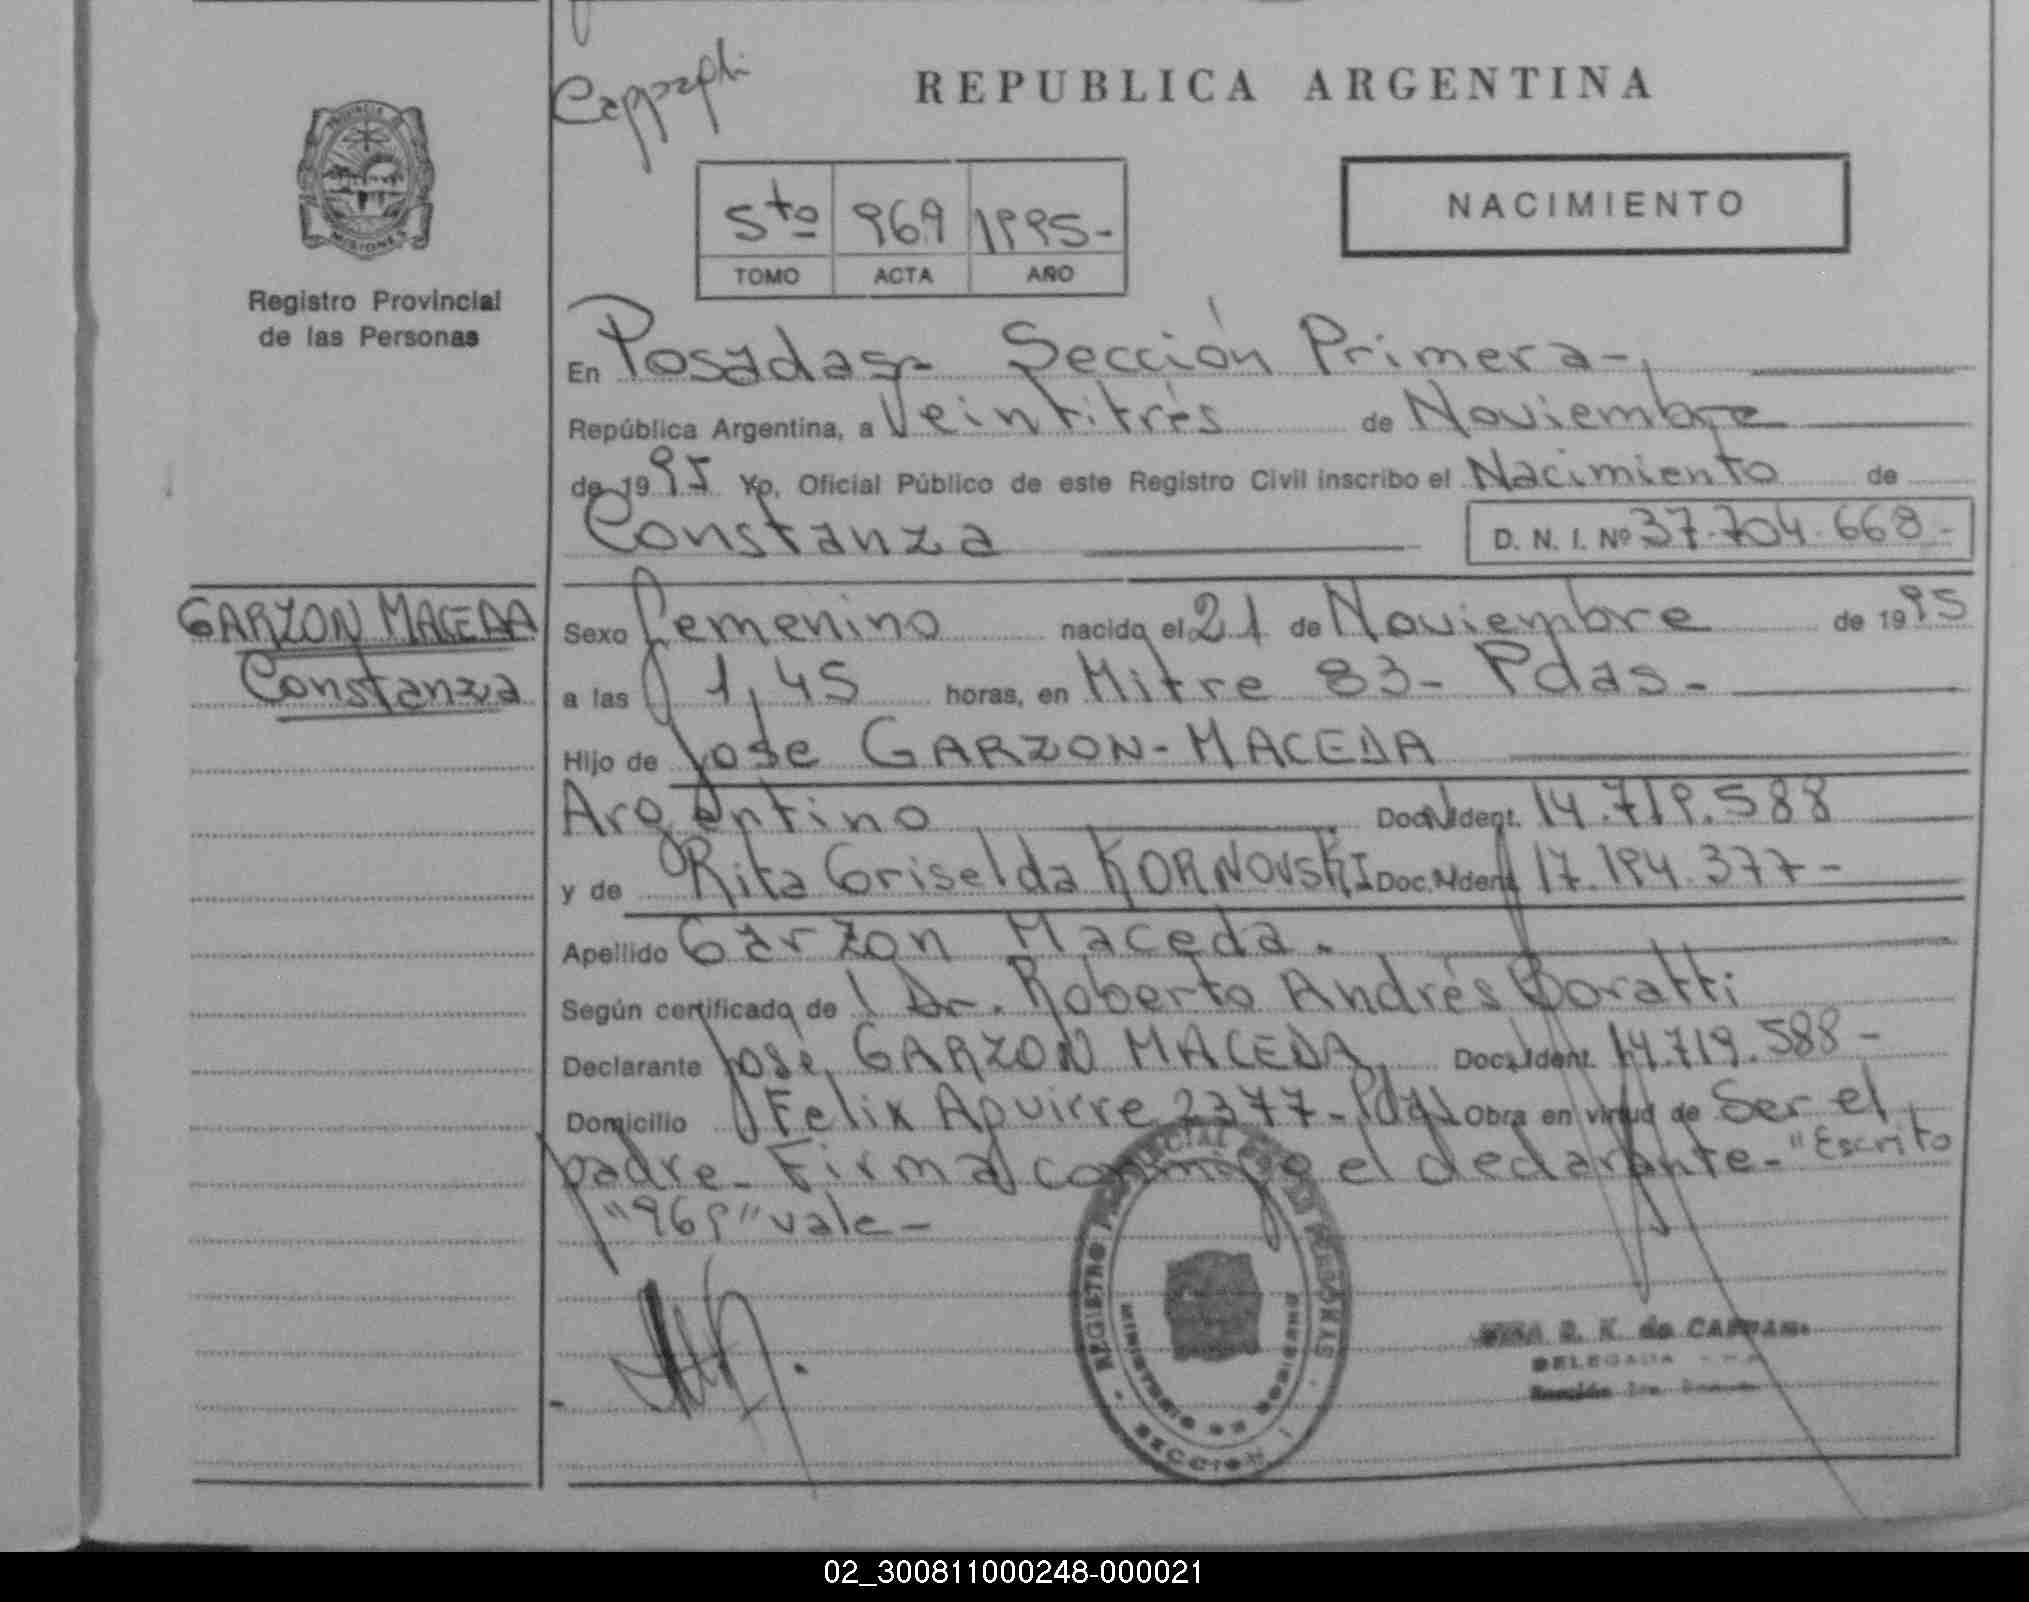 REPUBLICA ARGENTINA
PROVINCIA
MISIONES
Registro Provincial
de las Personas
5to 969 1995-
TOMO ACTA AÑO
NACIMIENTO
En Posadas- Sección Primera-,
República Argentina, a Veintitrés de Noviembre
de 1995 Yo, Oficial Público de este Registro Civil inscribo el Nacimiento de
Constanza D. N. I. Nº 37.704.668-
GARZON MACEDA
Constanza
Sexo femenino nacido el 21 de Noviembre de 1995
a las 1,45 horas, en Mitre 83- Pdas-
Hijo de José GARZON-MACEDA
Argentino Doc. Ident. 14.719.588
y de Rita Griselda KORNOVSKI Doc. Ident. 17.194.377-
Apellido Garzon Maceda.
Según certificado de Dr. Roberto Andrés Boratti
Declarante José GARZON MACEDA Doc. Ident. 14.719.588-
Domicilio Felix Aguirre 2377- Pdas Obra en virtud de Ser el
padre- Firma conmigo el declarante- "Escrito
"969" vale-
REGISTRO PROVINCIAL DE LAS PERSONAS
MINISTERIO DE GOBIERNO
SECCION
DELEGADA
02_300811000248-000021